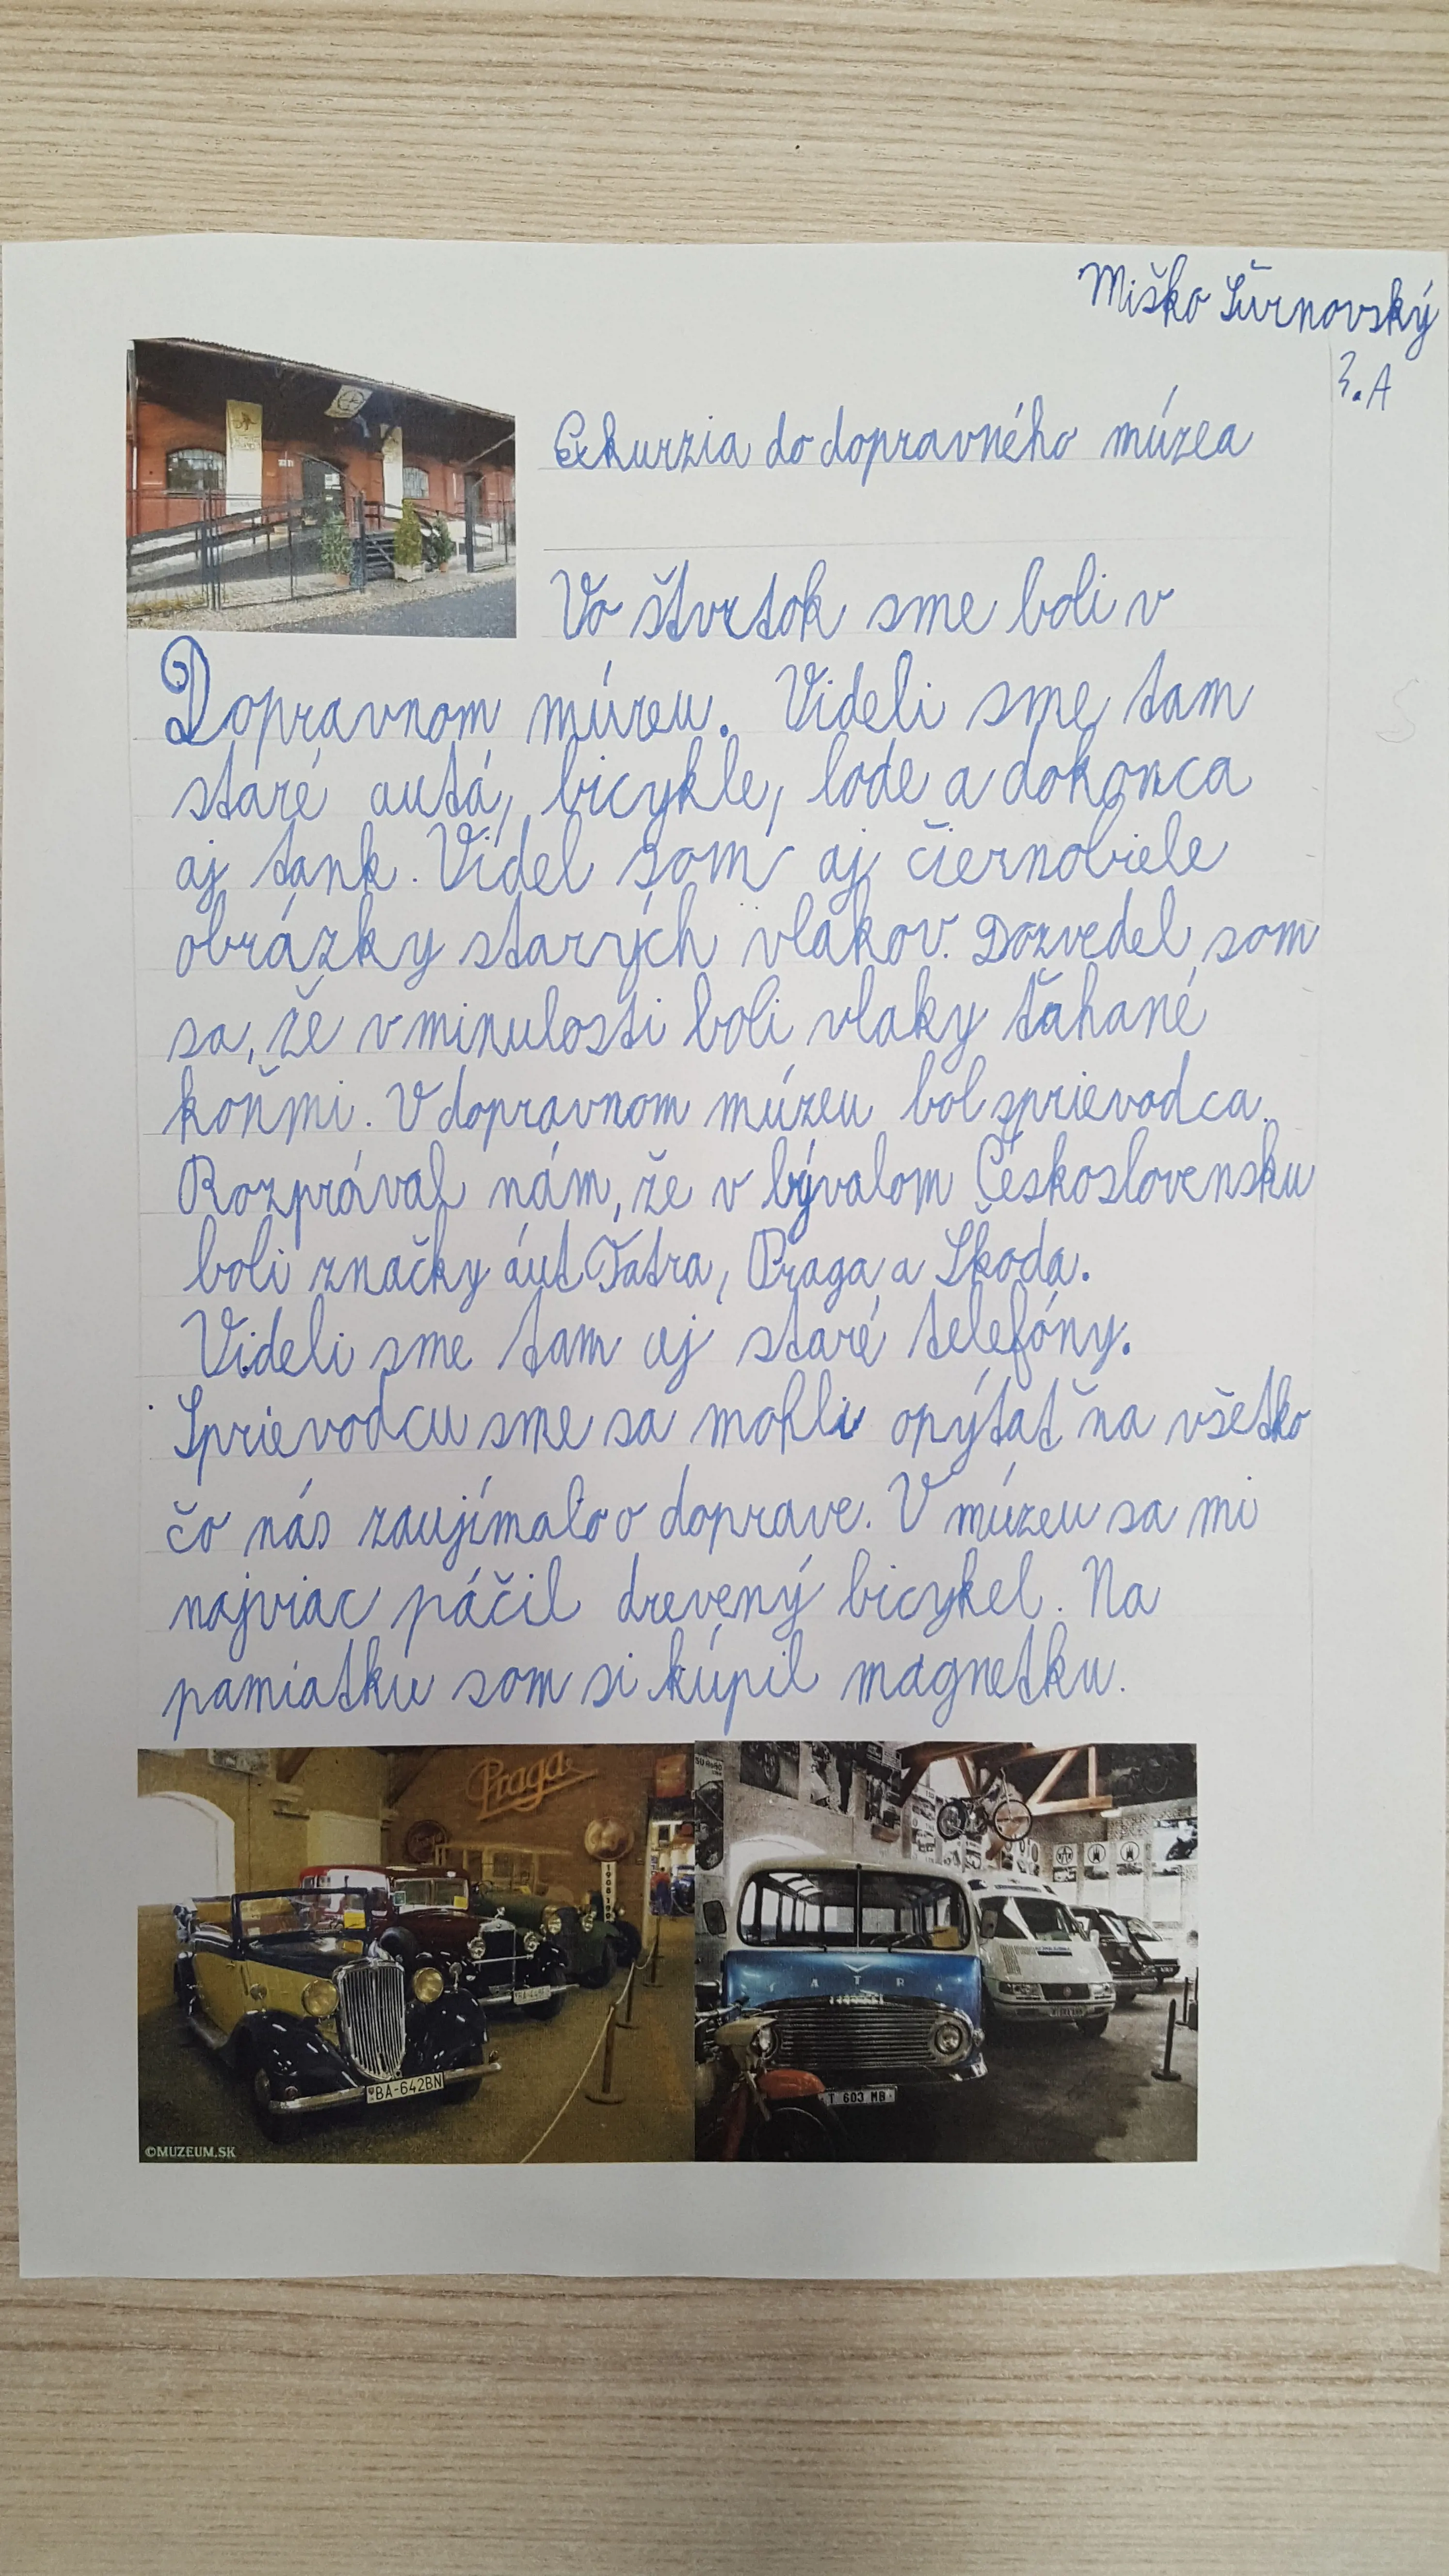 Miško Šurnovský
3. A
Exkurzia do dopravného múzea
Vo štvrtok sme boli v
Dopravnom múzeu. Videli sme tam
staré autá, bicykle, lode a dokonca
aj tank. Videl som aj čiernobiele
obrázky starých vlakov. Dozvedel som
sa, že v minulosti boli vlaky ťahané
koňmi. V dopravnom múzeu bol sprievodca.
Rozprával nám, že v bývalom Československu
boli značky áut Tatra, Praga a Škoda.
Videli sme tam aj staré telefóny.
Sprievodcu sme sa mohli opýtať na všetko
čo nás zaujímalo o doprave. V múzeu sa mi
najviac páčil drevený bicykel. Na
pamiatku som si kúpil magnetku.
Praga
1908
BA-642BN
©MUZEUM.SK
TATRA
T 603 MB